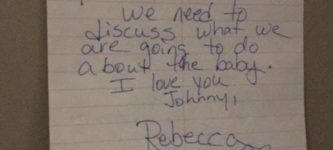 we need to
discuss what we
are going to do
about the baby.
I love you
Johnny,
Rebecca